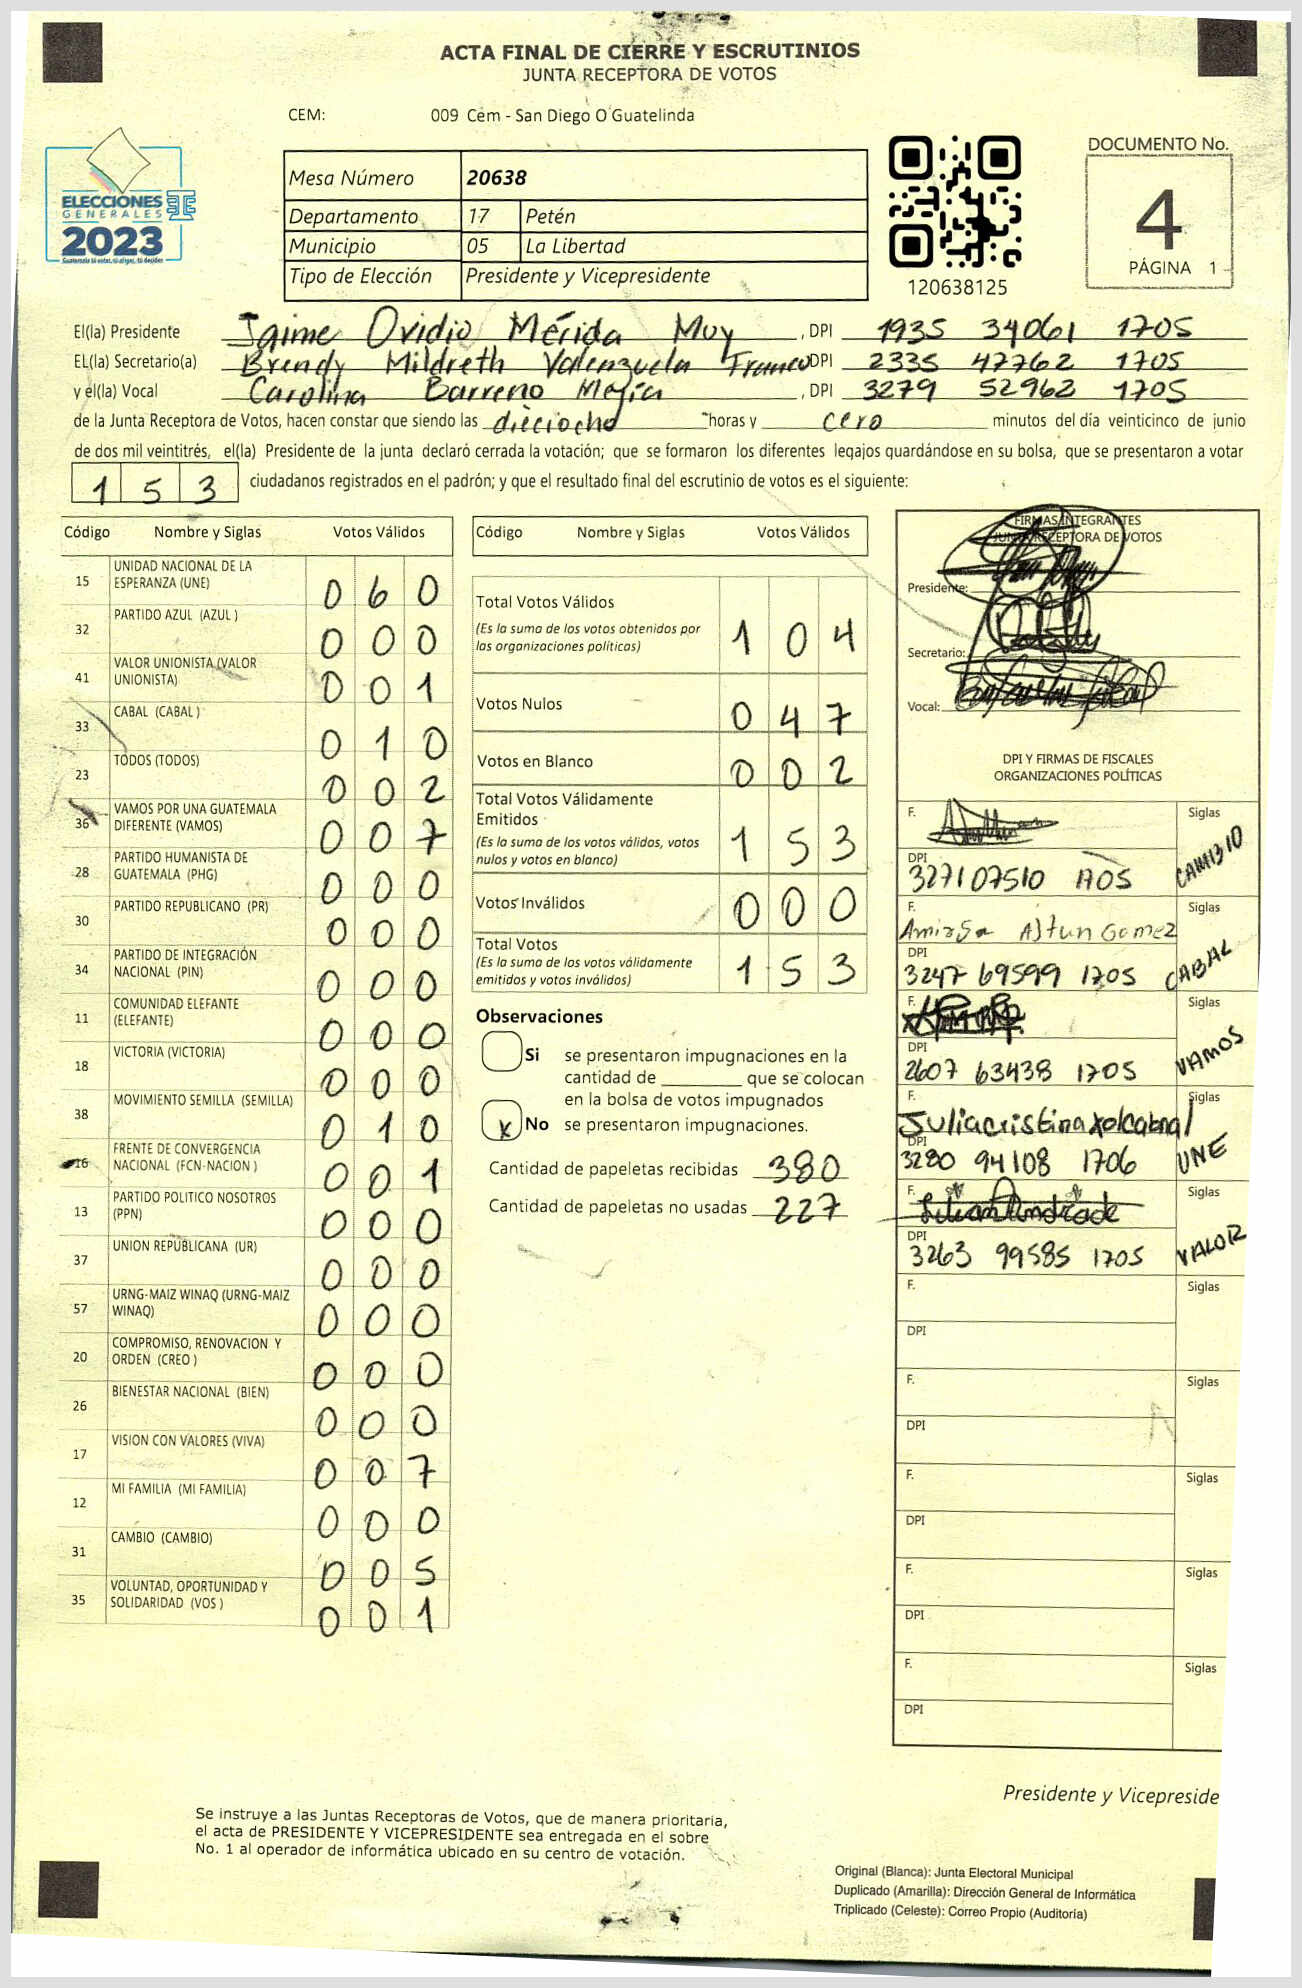 ACTA FINAL DE CIERRE Y ESCRUTINIOS
JUNTA RECEPTORA DE VOTOS
CEM: 009 Cem - San Diego O Guatelinda
ELECCIONES
GENERALES
2023
Mesa Número 20638
Departamento 17 Petén
Municipio 05 La Libertad
Tipo de Elección Presidente y Vicepresidente
120638125
DOCUMENTO No.
4
PÁGINA 1
El(la) Presidente Jaime Ovidio Mérida Muy , DPI 1935 34061 1705
EL(la) Secretario(a) Brendy Mildreth Valenzuela Franco DPI 2335 47762 1705
y el(la) Vocal Carolina Barreno Mejía , DPI 3279 52962 1705
de la Junta Receptora de Votos, hacen constar que siendo las dieciocho horas y cero minutos del día veinticinco de junio
de dos mil veintitrés, el(la) Presidente de la junta declaró cerrada la votación; que se formaron los diferentes legajos guardándose en su bolsa, que se presentaron a votar
153 ciudadanos registrados en el padrón; y que el resultado final del escrutinio de votos es el siguiente:
Código Nombre y Siglas Votos Válidos
15 UNIDAD NACIONAL DE LA ESPERANZA (UNE) 0 6 0
32 PARTIDO AZUL (AZUL ) 0 0 0
41 VALOR UNIONISTA (VALOR UNIONISTA) 0 0 1
33 CABAL (CABAL ) 0 1 0
23 TODOS (TODOS) 0 0 2
36 VAMOS POR UNA GUATEMALA DIFERENTE (VAMOS) 0 0 7
28 PARTIDO HUMANISTA DE GUATEMALA (PHG) 0 0 0
30 PARTIDO REPUBLICANO (PR) 0 0 0
34 PARTIDO DE INTEGRACIÓN NACIONAL (PIN) 0 0 0
11 COMUNIDAD ELEFANTE (ELEFANTE) 0 0 0
18 VICTORIA (VICTORIA) 0 0 0
38 MOVIMIENTO SEMILLA (SEMILLA) 0 1 0
16 FRENTE DE CONVERGENCIA NACIONAL (FCN-NACION ) 0 0 1
13 PARTIDO POLITICO NOSOTROS (PPN) 0 0 0
37 UNION REPUBLICANA (UR) 0 0 0
57 URNG-MAIZ WINAQ (URNG-MAIZ WINAQ) 0 0 0
20 COMPROMISO, RENOVACION Y ORDEN (CREO ) 0 0 0
26 BIENESTAR NACIONAL (BIEN) 0 0 0
17 VISION CON VALORES (VIVA) 0 0 7
12 MI FAMILIA (MI FAMILIA) 0 0 0
31 CAMBIO (CAMBIO) 0 0 5
35 VOLUNTAD, OPORTUNIDAD Y SOLIDARIDAD (VOS ) 0 0 1
Código Nombre y Siglas Votos Válidos
Total Votos Válidos 1 0 4
(Es la suma de los votos obtenidos por
las organizaciones políticas)
Votos Nulos 0 4 7
Votos en Blanco 0 0 2
Total Votos Válidamente
Emitidos 1 5 3
(Es la suma de los votos válidos, votos
nulos y votos en blanco)
Votos Inválidos 0 0 0
Total Votos 1 5 3
(Es la suma de los votos válidamente
emitidos y votos inválidos)
Observaciones
Si se presentaron impugnaciones en la
cantidad de ________ que se colocan
en la bolsa de votos impugnados
X No se presentaron impugnaciones.
Cantidad de papeletas recibidas 380
Cantidad de papeletas no usadas 227
FIRMAS INTEGRANTES
JUNTA RECEPTORA DE VOTOS
Presidente:
Secretario:
Vocal:
DPI Y FIRMAS DE FISCALES
ORGANIZACIONES POLÍTICAS
F. Siglas
DPI
327107510 1705 CAMBIO
F. Siglas
DPI
3247 69599 1705 CABAL
F. Siglas
DPI
2607 63438 1705 VAMOS
F. Siglas
DPI
3280 94108 1706 UNE
F. Siglas
Lilian Andrade
DPI
3263 99585 1705 VALOR
F. Siglas
DPI
F. Siglas
DPI
F. Siglas
DPI
F. Siglas
DPI
F. Siglas
DPI
Presidente y Vicepreside
Se instruye a las Juntas Receptoras de Votos, que de manera prioritaria,
el acta de PRESIDENTE Y VICEPRESIDENTE sea entregada en el sobre
No. 1 al operador de informática ubicado en su centro de votación.
Original (Blanca): Junta Electoral Municipal
Duplicado (Amarilla): Dirección General de Informática
Triplicado (Celeste): Correo Propio (Auditoría)